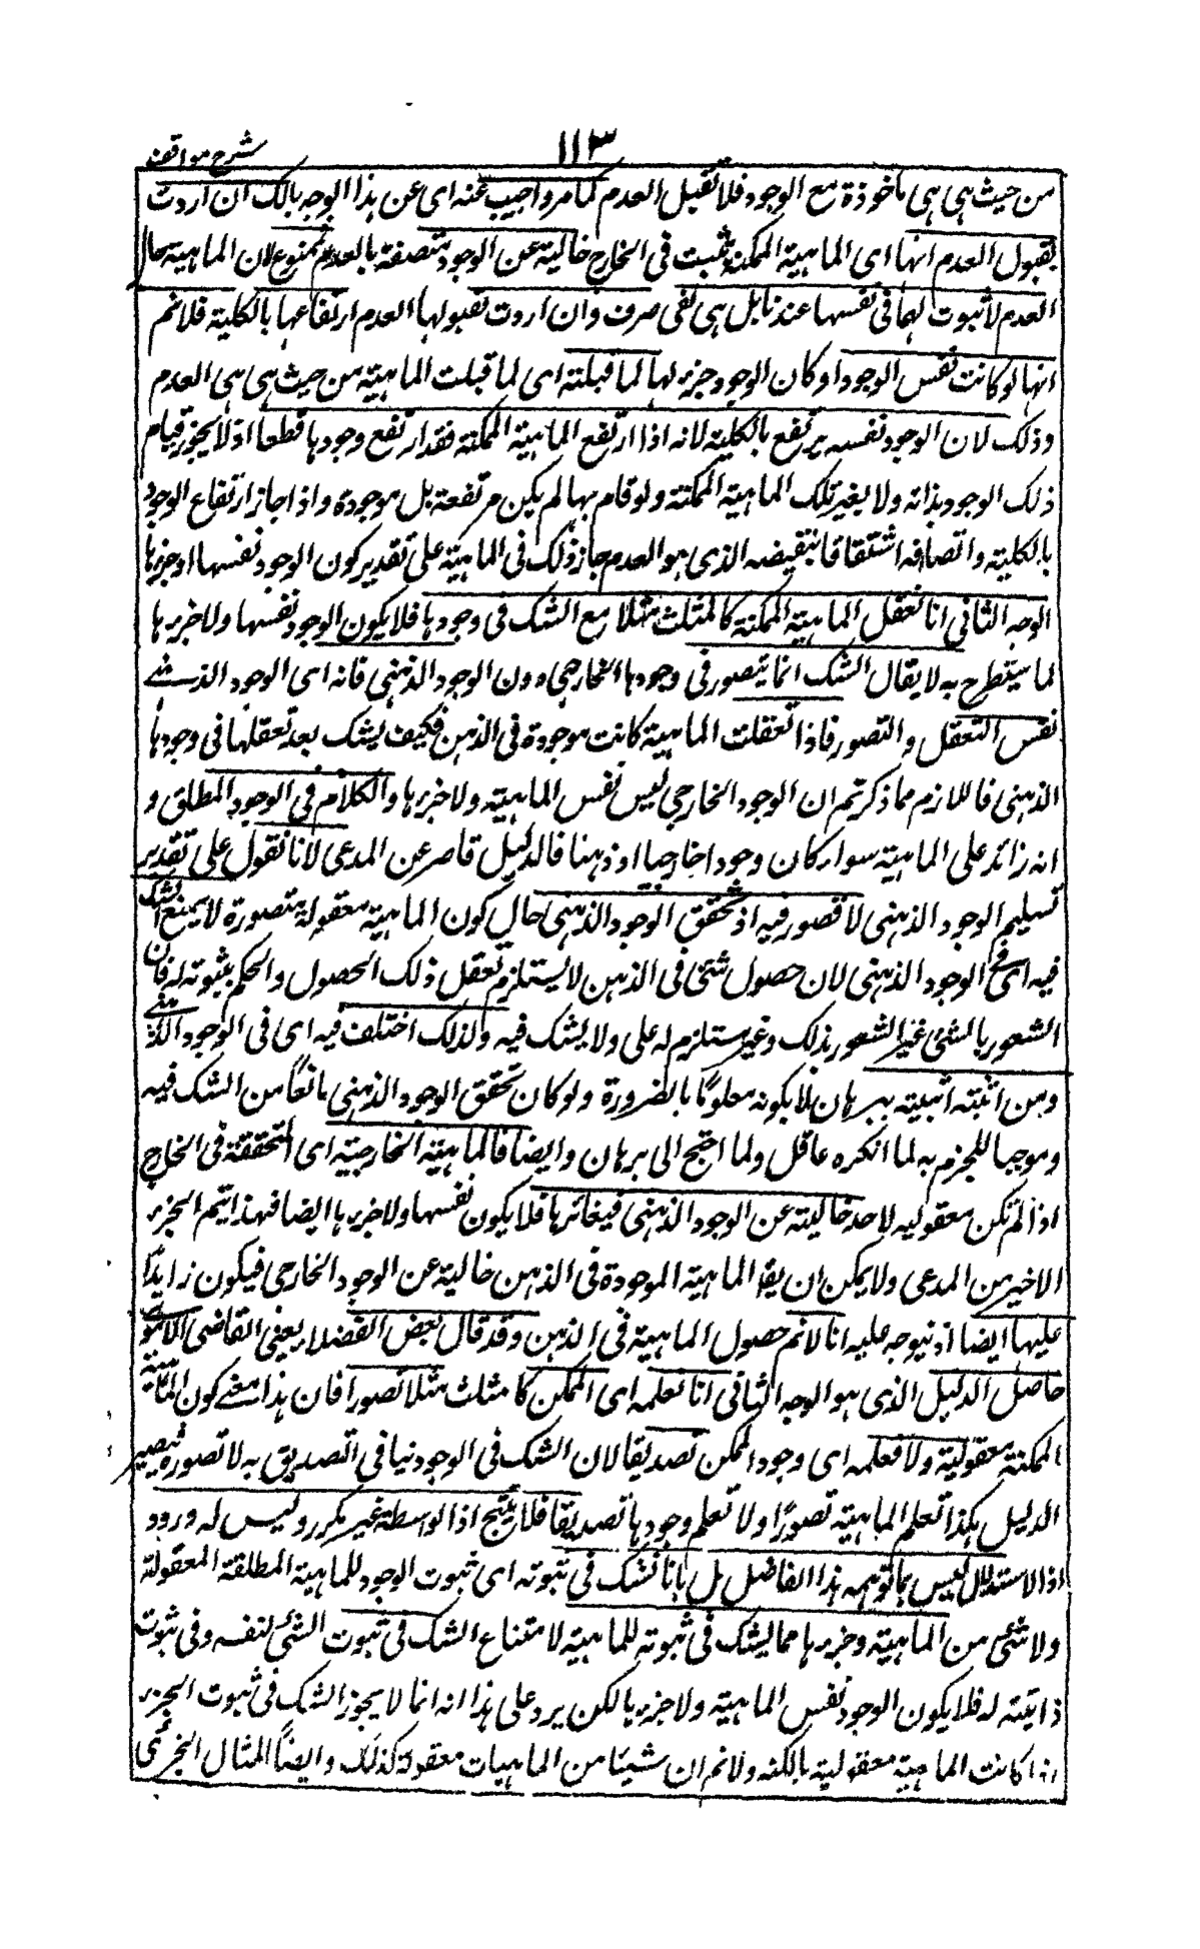 شرح مواقف
۱۱۳
من حيث هى هى ماخوذة مع الوجود فلا تقبل العدم كما مر واجيب عنه اى عن هذا الوجه بانك ان اردت
بقبول العدم انها اى الماهية الممكنة تثبت فى الخارج خالية عن الوجود متصفة بالعدم فممنوع لان الماهية حال
العدم لا ثبوت لها فى نفسها عندنا بل هى نفى صرف وان اردت بقبولها العدم ارتفاعها بالكلية فلا نم
انها لو كانت نفس الوجود او كان الوجود جزء لها لما قبلته اى لما قبلت الماهية من حيث هى هى العدم
وذلك لان الوجود نفسه يرتفع بالكلية لانه اذا ارتفع الماهية الممكنة فقد ارتفع وجودها قطعا اذ لا يجوز قيام
ذلك الوجود بذاته ولا بغير تلك الماهية الممكنة ولو قام بها لم يكن مرتفعة بل موجودة واذا جاز ارتفاع الوجود
بالكلية واتصافه اشتقاقا بنقيضه الذى هو العدم جاز ذلك فى الماهية على تقدير كون الوجود نفسها او جزءها
الوجه الثانى انا نعقل الماهية الممكنة كالمثلث مثلا مع الشك فى وجودها فلا يكون الوجود نفسها ولا جزءها
لما سيتطرح به لا يقال الشك انما يتصور فى وجودها الخارجى دون الوجود الذهنى فانه اى الوجود الذهنى
نفس التعقل والتصور فاذا تعقلت الماهية كانت موجودة فى الذهن فكيف يشك بعد تعقلها فى وجودها
الذهنى فاللازم مما ذكرتم ان الوجود الخارجى ليس نفس الماهية ولا جزءها والكلام فى الوجود المطلق و
انه زائد على الماهية سواء كان وجودا خارجيا او ذهنيا فالدليل قاصر عن المدعى لانا نقول على تقدير
تسليم الوجود الذهنى لا قصور فيه اذ تحقق الوجود الذهنى حال كون الماهية معقولة متصورة لا يمنع الشك
فيه اى فى الوجود الذهنى لان حصول شئ فى الذهن لا يستلزم تعقل ذلك الحصول والحكم بثبوته له فان
الشعور بالشئ غير الشعور بذلك وغير مستلزم له على ولا يشك فيه ولذلك اختلف فيه اى فى الوجود الذهنى
ومن اثبته اثبته ببرهان لا بكونه معلومًا بالضرورة ولو كان تحقق الوجود الذهنى مانعًا من الشك فيه
وموجبا للجزم به لما انكره عاقل ولما احتج الى برهان وايضا فالماهية الخارجية اى المتحققة فى الخارج
اذا لم تكن معقولة لاحد خالية عن الوجود الذهنى فيغائرها فلا يكون نفسها ولا جزءها ايضا فهذا يتم الجزء
الاخير من المدعى ولا يمكن ان يقا الماهية الموجودة فى الذهن خالية عن الوجود الخارجى فيكون زايدًا
عليها ايضا اذ يتوجه عليه انا لا نم حصول الماهية فى الذهن وقد قال بعض الفضلاء يعنى القاضى الارموى
حاصل الدليل الذى هو الوجه الثانى انا نعلمه اى الممكن كا مثلث مثلا تصورا فان هذا معنى كون الماهية
الممكنة معقولة ولا نعلمه اى وجود الممكن تصديقا لان الشك فى الوجود ينافى التصديق به لا تصوره فيصير
الدليل هكذا نعلم الماهية تصورًا ولا نعلم وجودها تصديقا فلا ينتج اذ الواسطة غير مكرر وليس له ورود
اذ الاستدلال ليس بما توهمه هذا الفاضل بل بانا نشك فى ثبوته اى ثبوت الوجود للماهية المطلقة المعقولة
ولا شئ من الماهية وجزءها مما يشك فى ثبوته للماهية لامتناع الشك فى ثبوت الشئ لنفسه وفى ثبوت
ذاتيته له فلا يكون الوجود نفس الماهية ولا جزءها لكن يرد على هذا انه انما لا يجوز الشك فى ثبوت الجزء
اذا كانت الماهية معقولة بالكنه ولا نم ان شيئا من الماهيات معقولة كذلك وايضًا المثال الجزئى